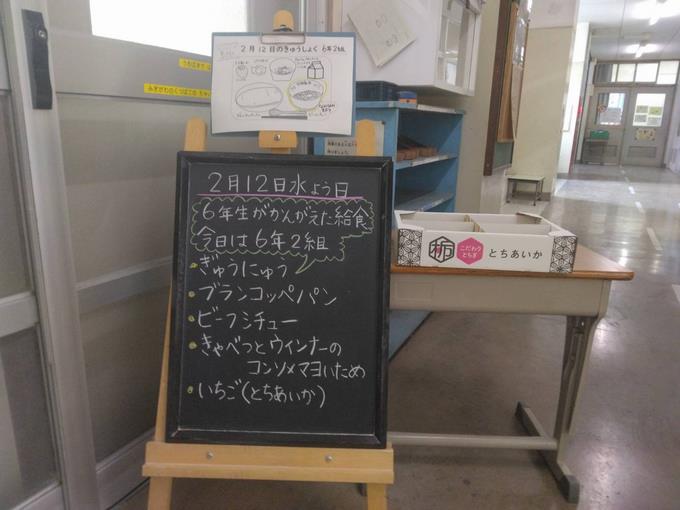 2月12日のきゅうしょく 6年2組
2月12日水よう日
6年生がかんがえた給食
今日は6年2組
ぎゅうにゅう
ブランコッペパン
ビーフシチュー
きゃべつとウィンナーの
コンソメマヨいため
いちご(とちあいか)
栃
こだわり
とちぎ
とちあいか